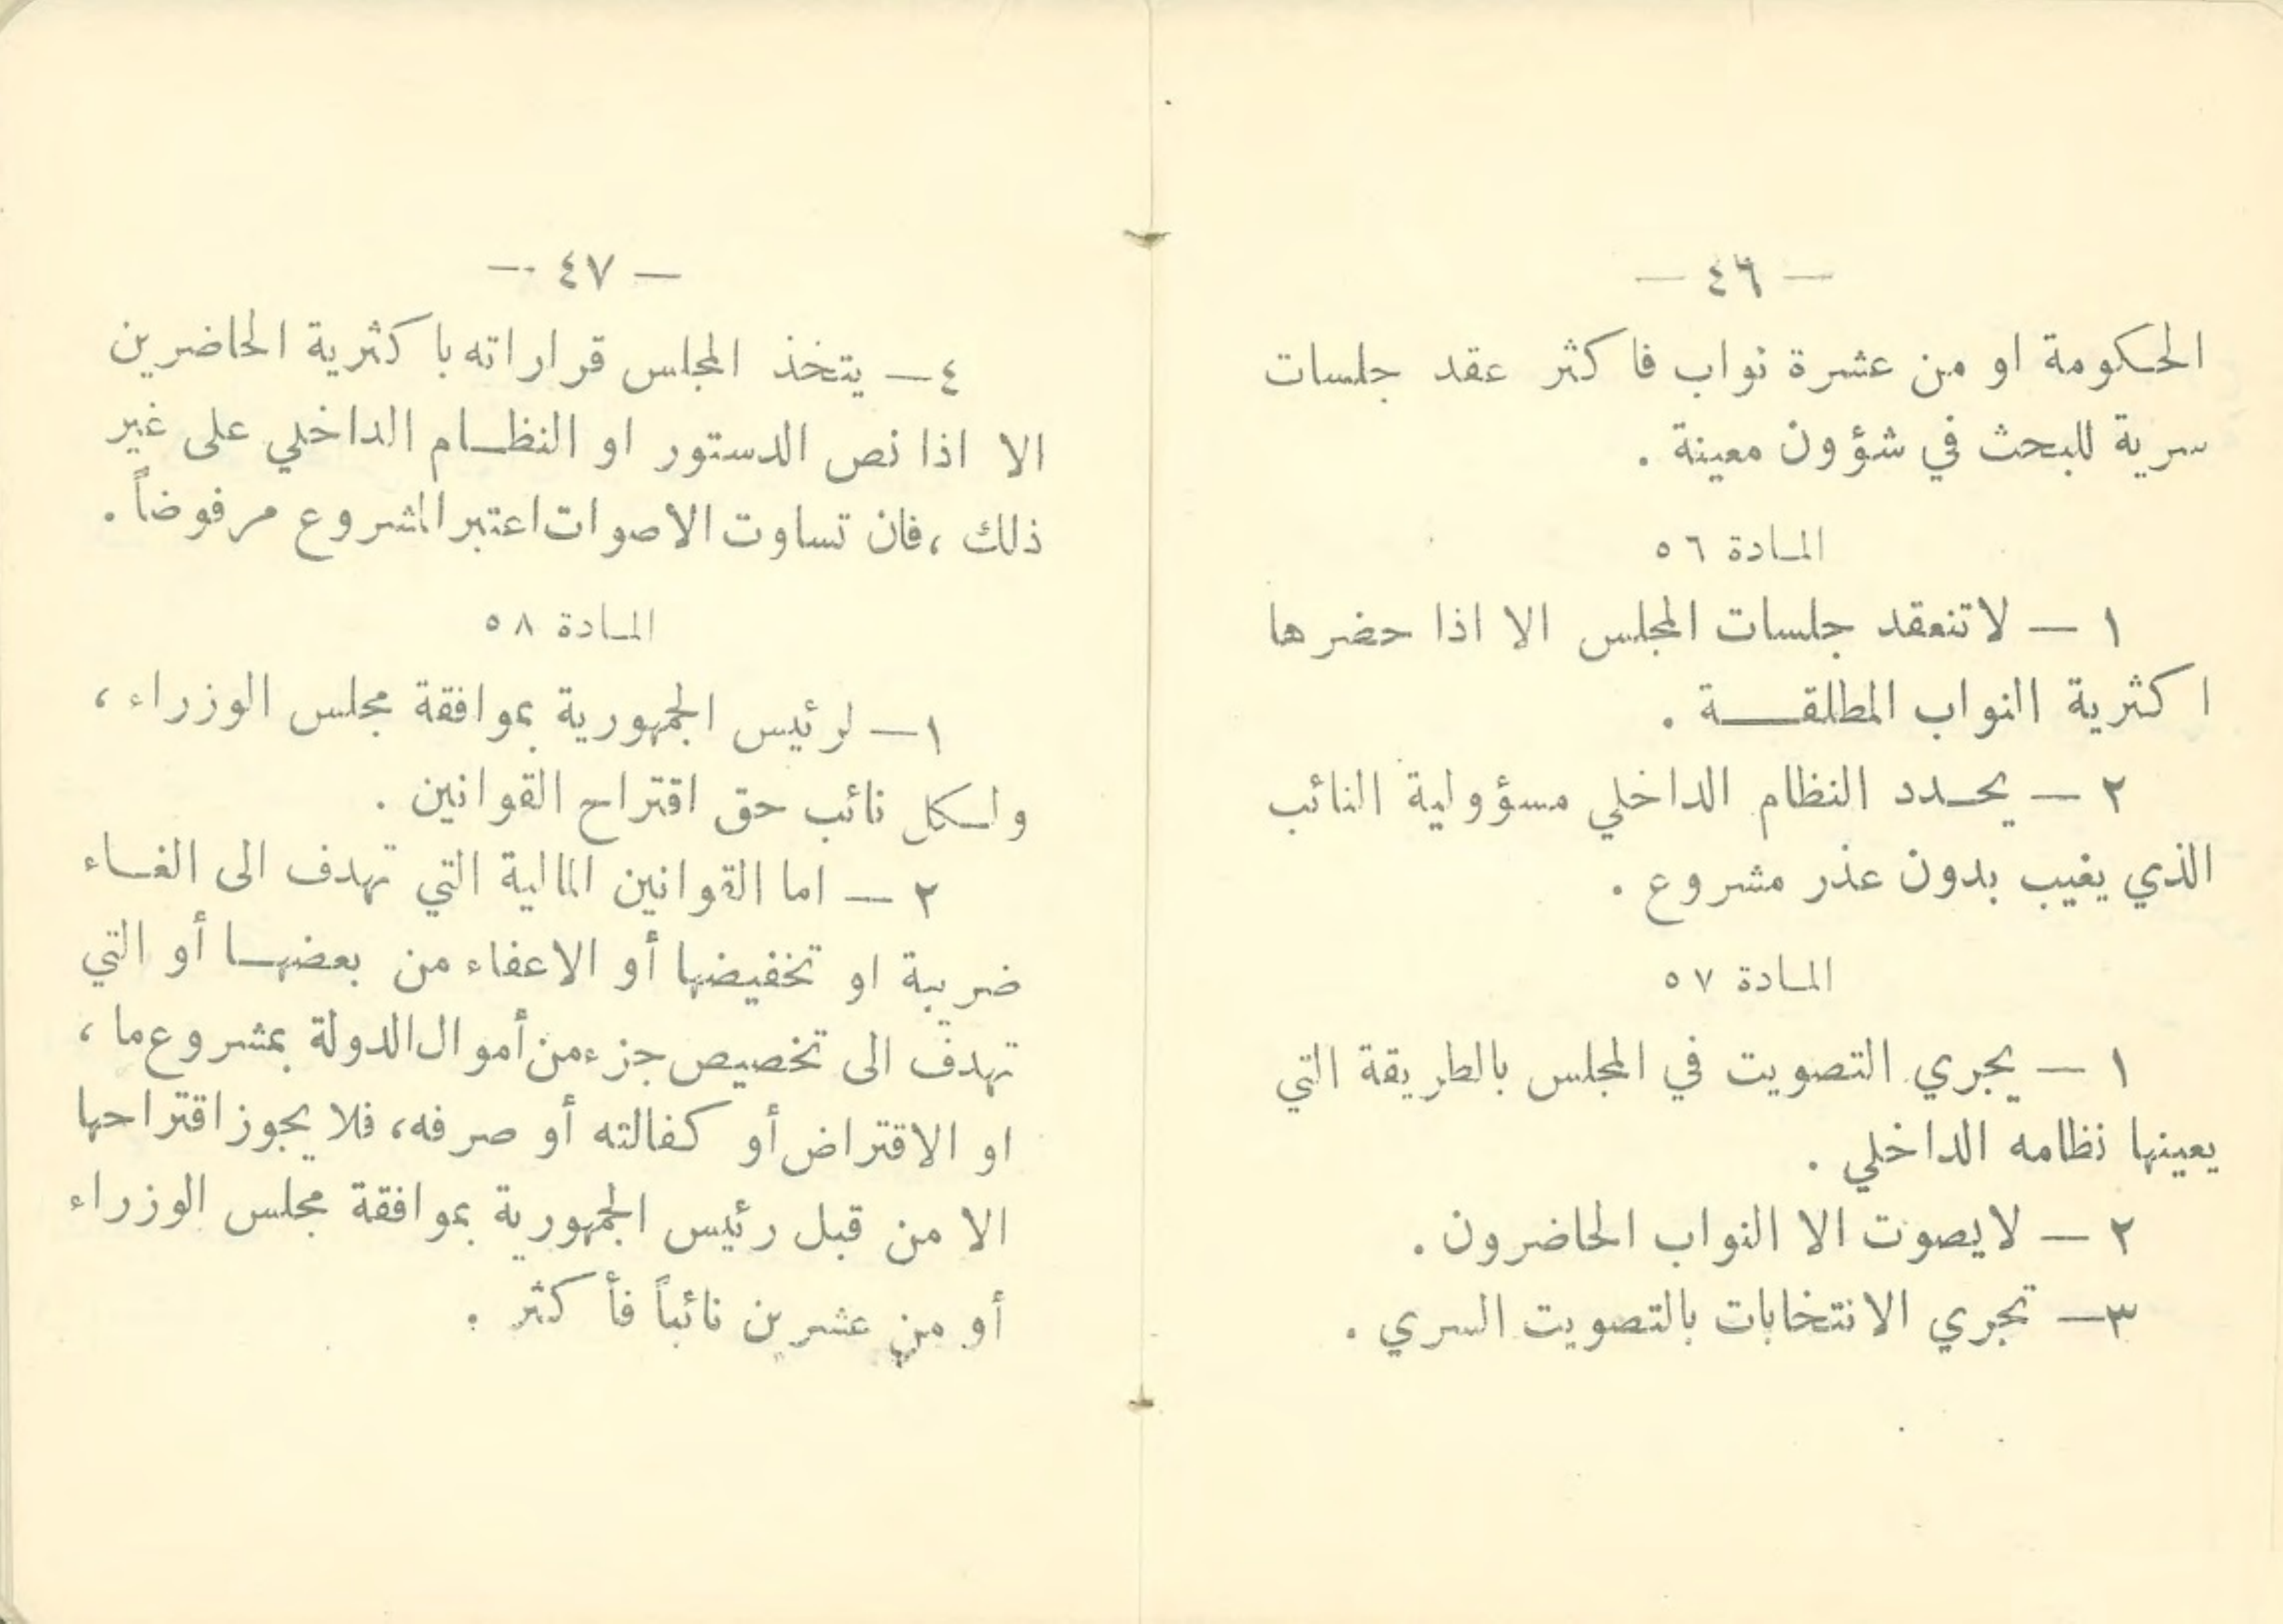 — ٤٦ —
الحكومة او من عشرة نواب فاكثر عقد جلسات
سرية للبحث في شؤون معينة .
المادة ٥٦
١ — لاتنعقد جلسات المجلس الا اذا حضرها
اكثرية النواب المطلقة .
٢ — يحدد النظام الداخلي مسؤولية النائب
الذي يغيب بدون عذر مشروع .
المادة ٥٧
١ — يجري التصويت في المجلس بالطريقة التي
يعينها نظامه الداخلي .
٢ — لايصوت الا النواب الحاضرون .
٣— تجري الانتخابات بالتصويت السري .
— ٤٧ —
٤— يتخذ المجلس قراراته باكثرية الحاضرين
الا اذا نص الدستور او النظام الداخلي على غير
ذلك ، فان تساوت الاصوات اعتبر المشروع مرفوضاً .
المادة ٥٨
١— لرئيس الجمهورية بموافقة مجلس الوزراء ،
ولكل نائب حق اقتراح القوانين .
٢ — اما القوانين المالية التي تهدف الى الغاء
ضريبة او تخفيضها أو الاعفاء من بعضها أو التي
تهدف الى تخصيص جزء من أموال الدولة بمشروع ما ،
او الاقتراض أو كفالته أو صرفه ، فلا يجوز اقتراحها
الا من قبل رئيس الجمهورية بموافقة مجلس الوزراء
أو من عشرين نائباً فأكثر .